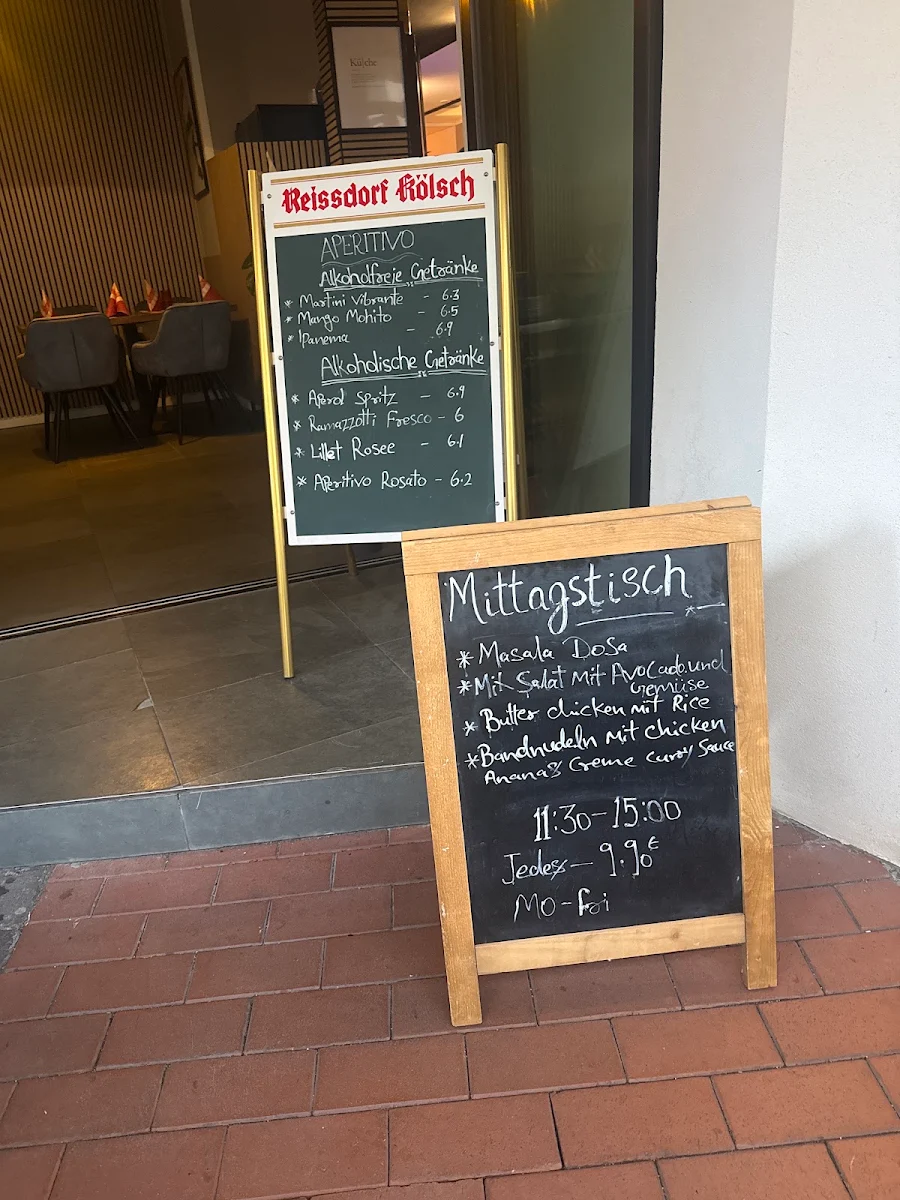 Küche
Reissdorf Kölsch
APERITIVO
Alkoholfreie Getränke
* Martini Vibrante - 6.3
* Mango Mohito - 6.5
* Ipanema - 6.9
Alkoholische Getränke
* Aperol Spritz - 6.9
* Ramazzotti Fresco - 6
* Lillet Rosee - 6.1
* Aperitivo Rosato - 6.2
Mittagstisch
* Masala Dosa
* Mix Salat mit Avocado und
Gemüse
* Butter chicken mit Rice
* Bandnudeln mit chicken
Ananas Creme curry Sauce
11:30-15:00
Jedes - 9.90€
Mo - fri